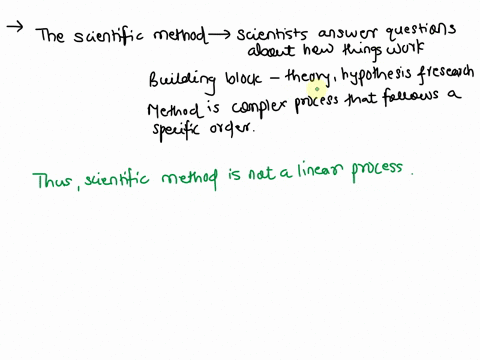 → The scientific method → scientists answer questions
about how things work
Building block - theory, hypothesis & research
Method is complex process that follows a
specific order.
Thus, scientific method is not a linear process.